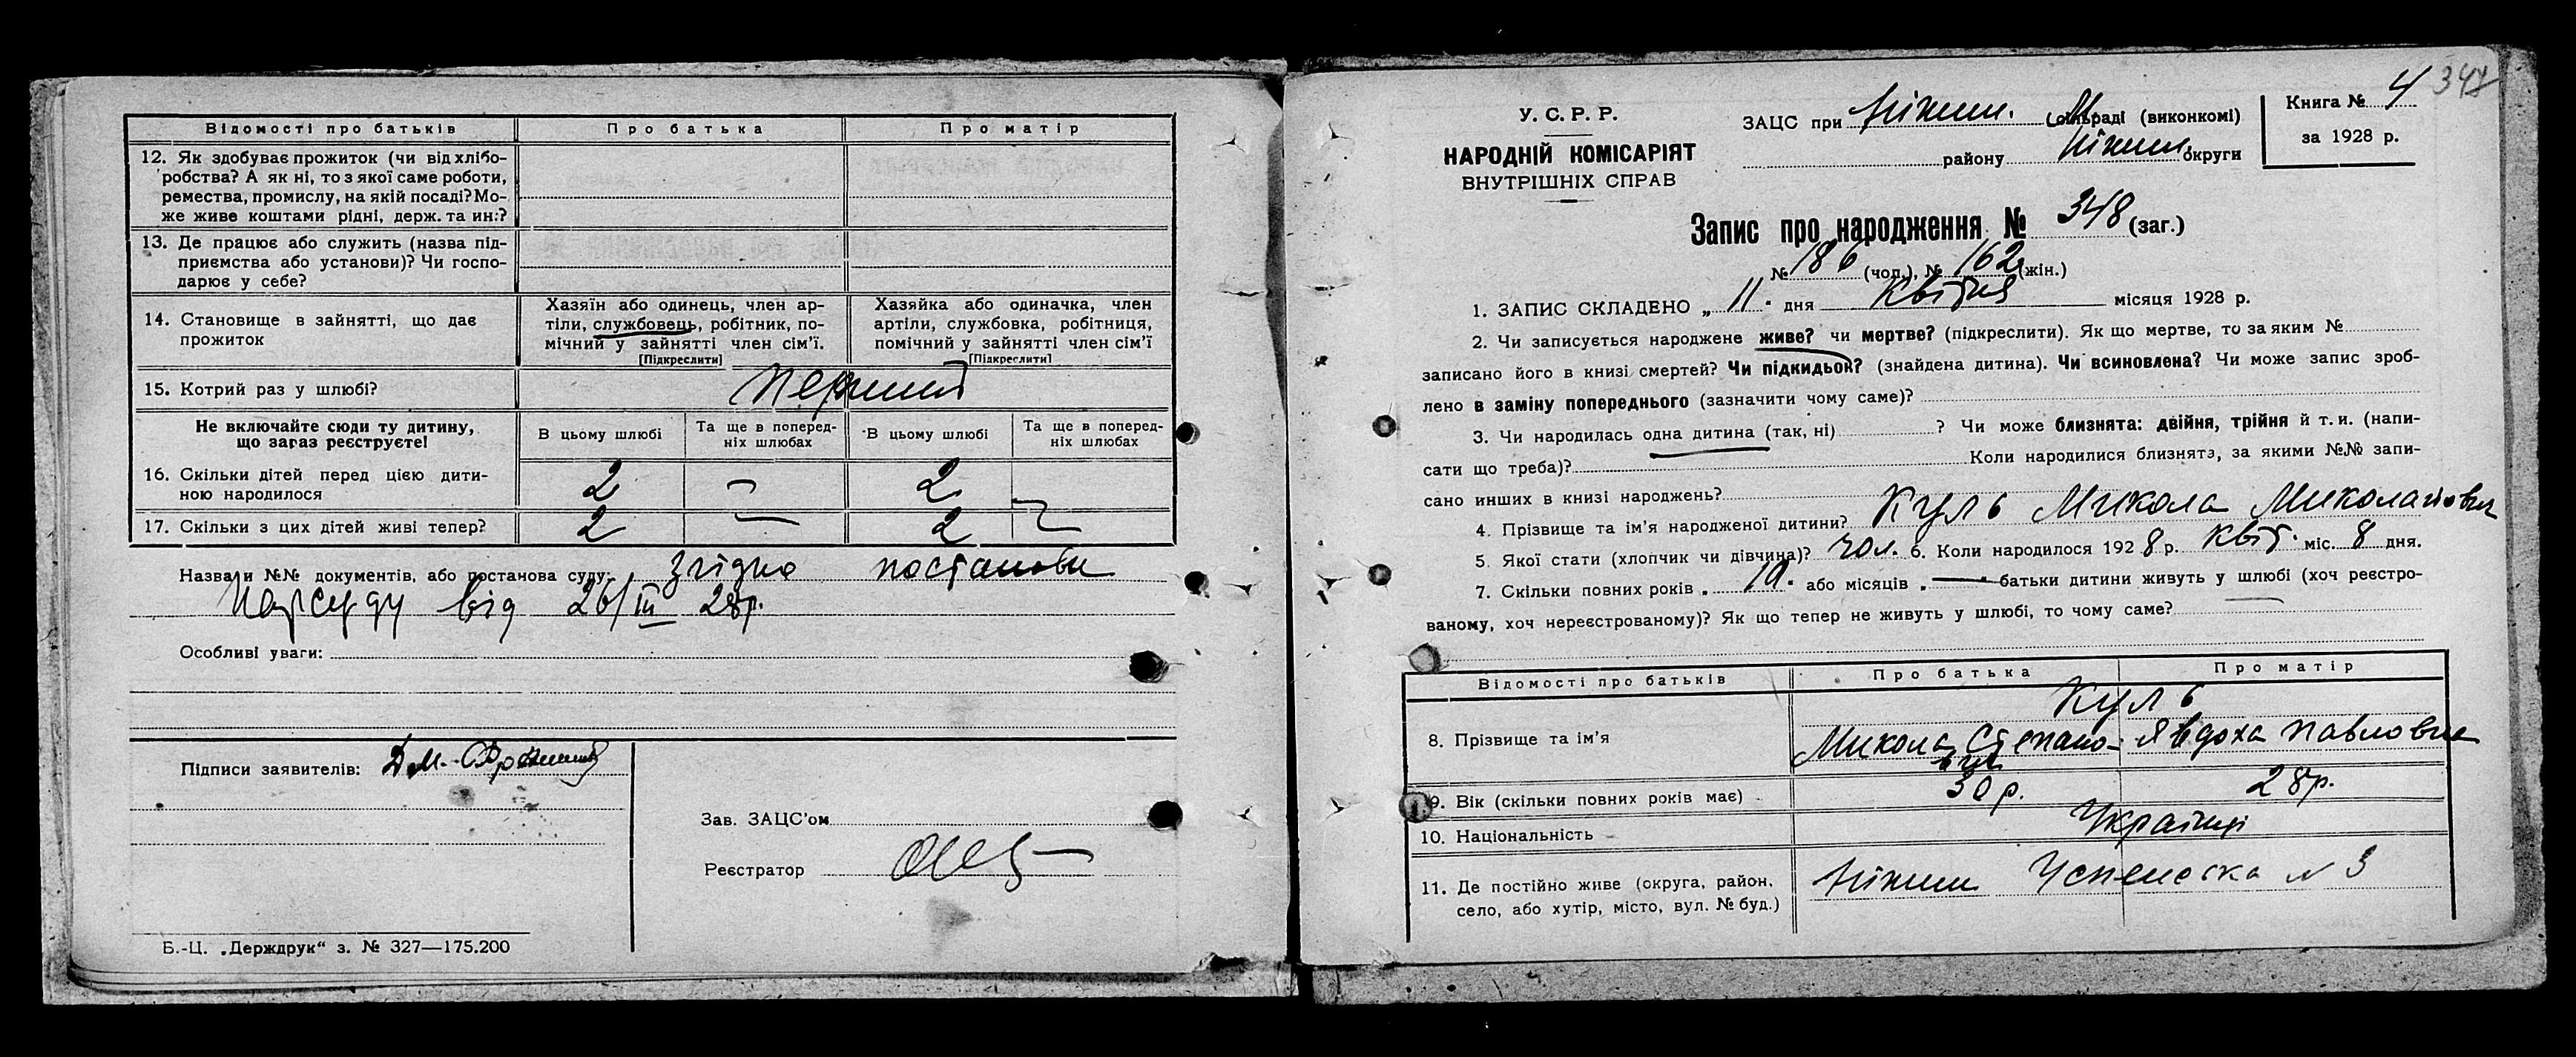 Відомості про батьків Про батька Про матір
12. Як здобуває прожиток (чи від хлібо-
робства? А як ні, то з якої саме роботи,
ремества, промислу, на якій посаді? Мо-
же живе коштами рідні, держ. та ин.?
13. Де працює або служить (назва під-
приємства або установи)? Чи госпо-
дарює у себе?
14. Становище в зайнятті, що дає
прожиток
Хазяїн або одинець, член ар-
тіли, службовець, робітник, по-
мічний у зайнятті член сім'ї.
[Підкреслити]
Хазяйка або одиначка, член
артіли, службовка, робітниця,
помічний у зайнятті член сім'ї
[Підкреслити]
15. Котрий раз у шлюбі? Перший
Не включайте сюди ту дитину,
що зараз реєструєте!
В цьому шлюбі
Та ще в поперед-
ніх шлюбах
В цьому шлюбі
Та ще в поперед-
ніх шлюбах
16. Скільки дітей перед цією дити-
ною народилося 2 — 2 —
17. Скільки з цих дітей живі тепер? 2 — 2
Назва и №№ документів, або постанова суду: Згідно постанови
Нарсуду від 26/III 28р.
Особливі уваги:
Підписи заявителів:
Зав. ЗАЦС'ом
Реєстратор
Б.-Ц. „Держдрук" з. № 327—175.200
347
У. С. Р. Р.
НАРОДНІЙ КОМІСАРІЯТ
ВНУТРІШНІХ СПРАВ
ЗАЦС при Ніжин. сільраді (виконкомі)
району Ніжин. округи
Книга № 4
за 1928 р.
Запис про народження № 348 (заг.)
№ 186 (чол.), № 162 (жін.)
1. ЗАПИС СКЛАДЕНО „ 11 " дня Квітня місяця 1928 р.
2. Чи записується народжене живе? чи мертве? (підкреслити). Як що мертве, то за яким №
записано його в книзі смертей? Чи підкидьок? (знайдена дитина). Чи всиновлена? Чи може запис зроб-
лено в заміну попереднього (зазначити чому саме)?
3. Чи народилась одна дитина (так, ні) ? Чи може близнята: двійня, трійня й т. и. (напи-
сати що треба)? Коли народилися близнята, за якими №№ запи-
сано инших в книзі народжень?
4. Прізвище та ім'я народженої дитини? Куль Микола Миколайович
5. Якої стати (хлопчик чи дівчина)? чол. 6. Коли народилося 1928 р. Квіт. міс. 8 дня.
7. Скільки повних років „ 10 " або місяців „ — " батьки дитини живуть у шлюбі (хоч реєстро-
ваному, хоч нереєстрованому)? Як що тепер не живуть у шлюбі, то чому саме?
Відомості про батьків Про батька Про матір
Куль
8. Прізвище та ім'я Микола Степано- Явдоха Павловна
вич
9. Вік (скільки повних років має) 30 р. 28р.
10. Національність Українці
11. Де постійно живе (округа, район,
село, або хутір, місто, вул. № буд.)
Ніжин Успенська № 3